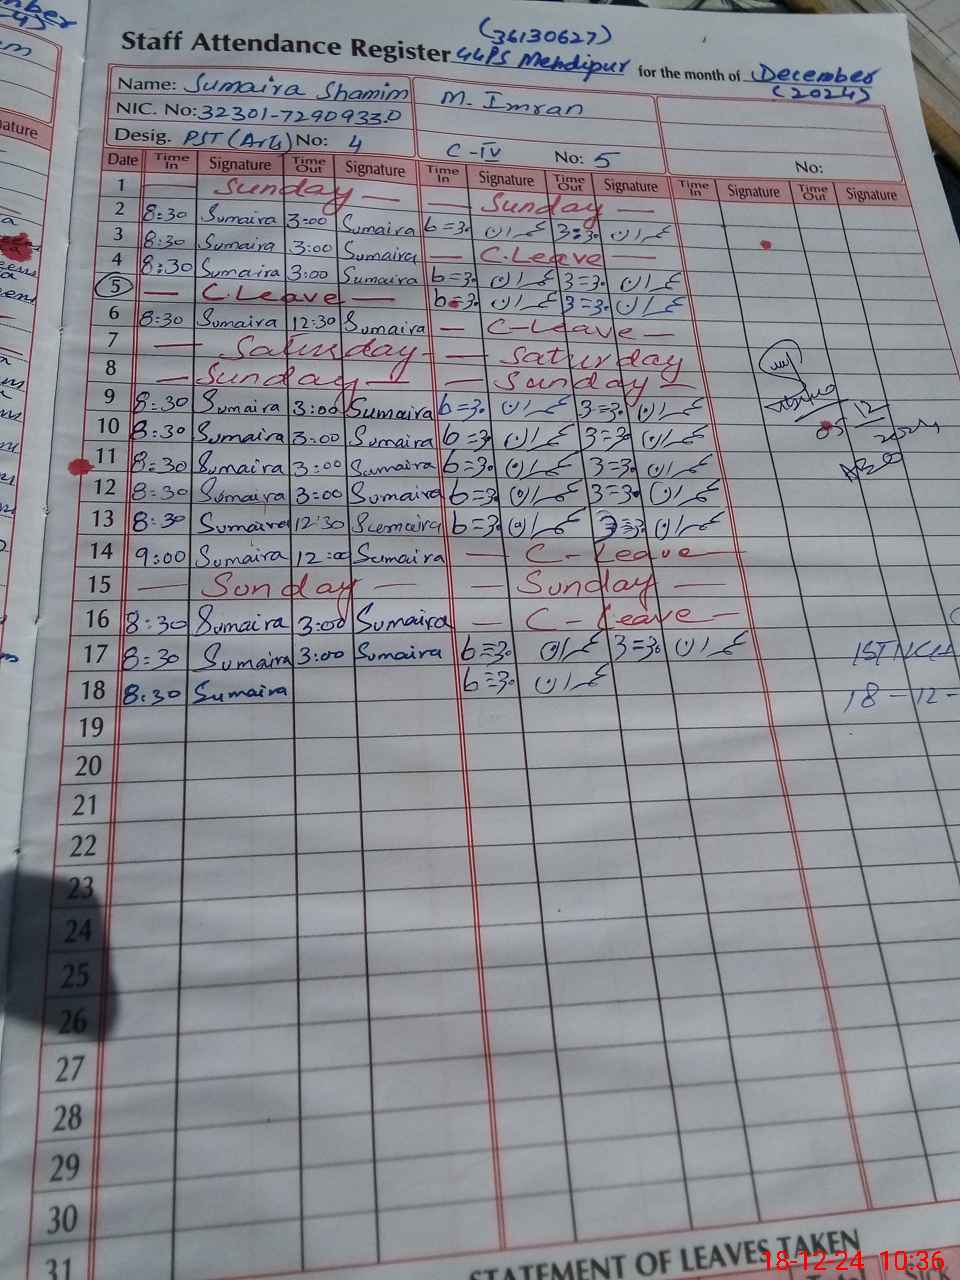 (36130627)
Staff Attendance Register GGPS Mehdipur for the month of December
(2024)
Name: Sumaira Shamim M. Imran
NIC. No: 32301-7290933.0
Desig. PST (Arts) No: 4 C-IV No: 5 No:
Date Time In Signature Time Out Signature Time In Signature Time Out Signature Time In Signature Time Out Signature
1 — Sunday — — Sunday —
2 8:30 Sumaira 3:00 Sumaira 6=3. عمران 3=3. عمران
3 8:30 Sumaira 3:00 Sumaira — C.Leave —
4 8:30 Sumaira 3:00 Sumaira 6=3. عمران 3=3. عمران
5 — C.Leave — 6=3. عمران 3=3. عمران
6 8:30 Sumaira 12:30 Sumaira — C-Leave —
7 — Saturday — — Saturday
8 — Sunday — — Sunday —
9 8:30 Sumaira 3:00 Sumaira 6=3. عمران 3=3. عمران
10 8:30 Sumaira 3:00 Sumaira 6=3. عمران 3=3. عمران
11 8:30 Sumaira 3:00 Sumaira 6=3. عمران 3=3. عمران
12 8:30 Sumaira 3:00 Sumaira 6=3. عمران 3=3. عمران
13 8:30 Sumaira 12:30 Sumaira 6=3. عمران 3=3. عمران
14 9:00 Sumaira 12:00 Sumaira — C-Leave —
15 — Sunday — — Sunday —
16 8:30 Sumaira 3:00 Sumaira — C-Leave —
17 8:30 Sumaira 3:00 Sumaira 6=3. عمران 3=3. عمران
18 8:30 Sumaira 6=3. عمران 18-12-
19
20
21
22
23
24
25
26
27
28
29
30
31
05 12
2024
STATEMENT OF LEAVES TAKEN
18-12-24 10:36